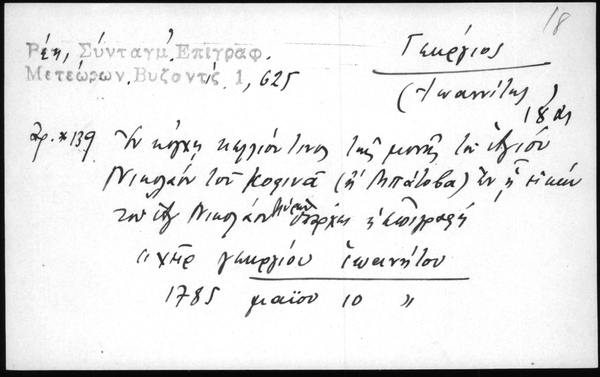 18
Ρέη, Σύνταγμ. Επιγραφ.
Μετεώρων. Βυζαντίς 1, 625
Γεώργιος
(Ιωαννίτης)
18 αι
Αρ. * 139 Ἐν κόγχῃ κελλίου τινος τῆς μονῆς τοῦ Ἁγίου
Νικολάου τοῦ Κοφινᾶ (ἢ Μπάτοβα) ἐν ᾗ εἰκὼν
τοῦ Ἁγ Νικολάου ὑπάρχει ἡ ἐπιγραφή
"χεὶρ γεωργίου ἰωανήτου
1785 μαΐου 10 "